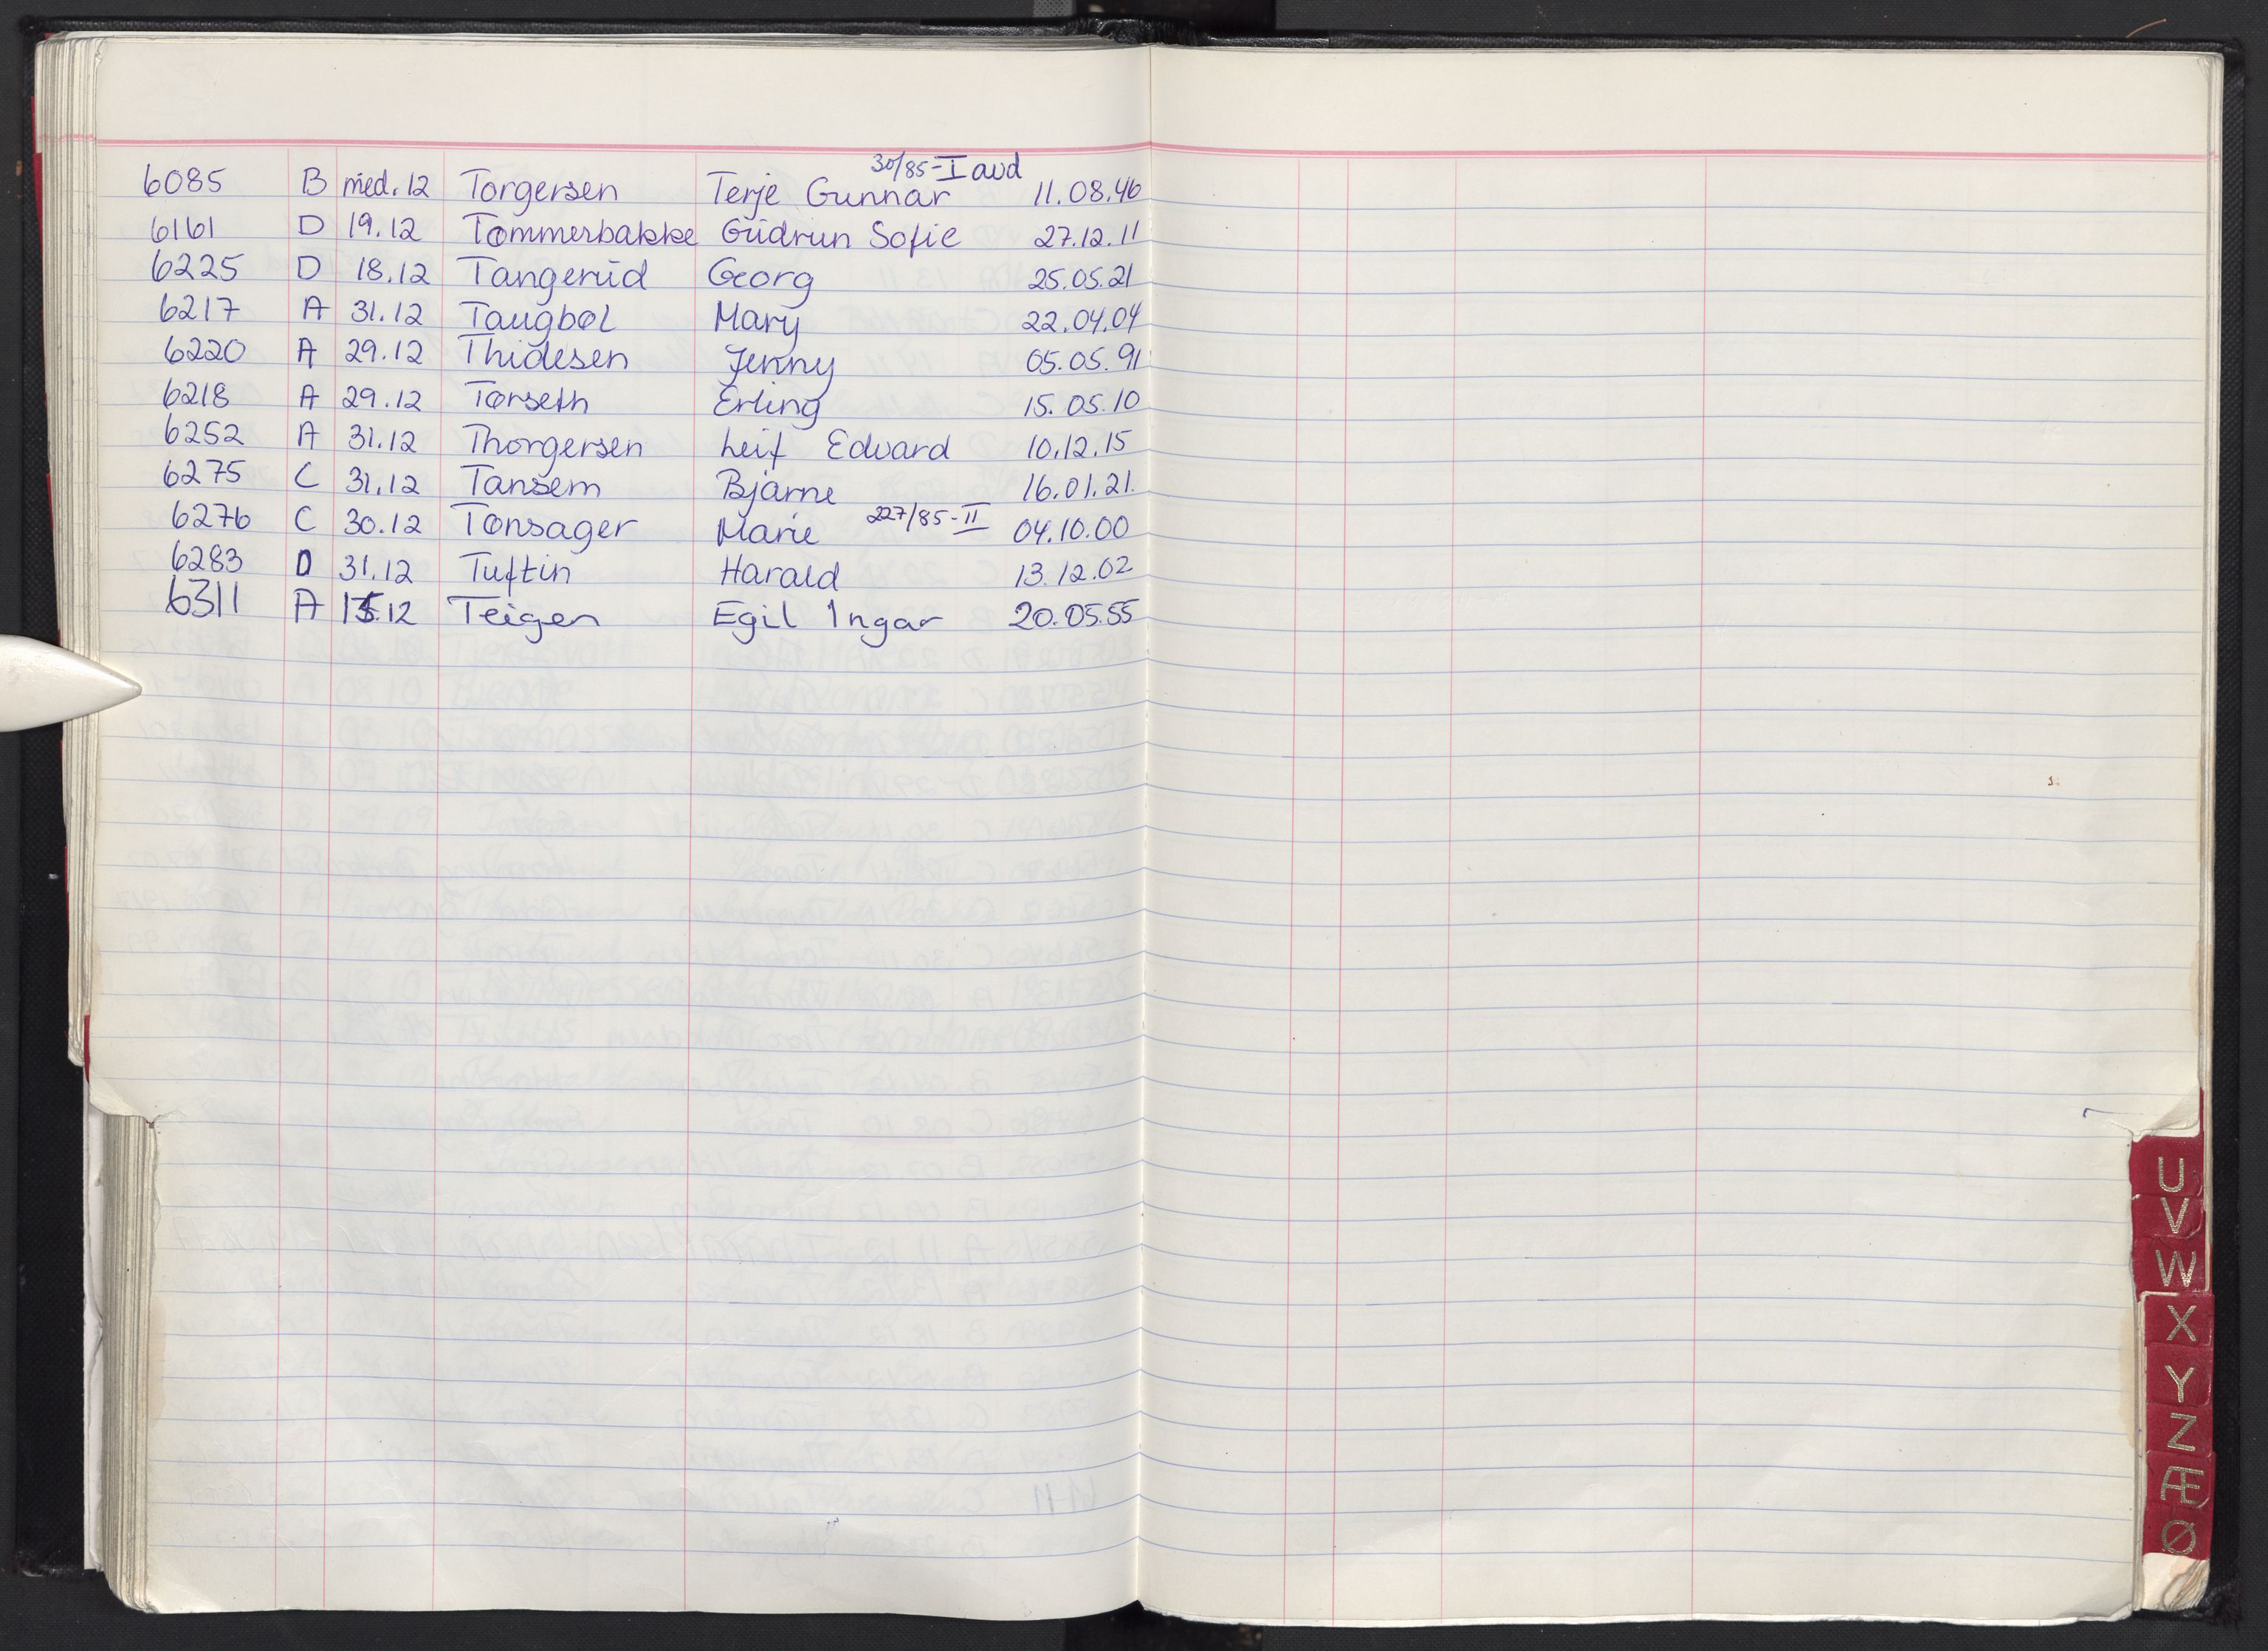 30/85-I avd
6085 B med. 12 Torgersen Terje Gunnar 11.08.46
6161 D 19.12 Tømmerbakke Gudrun Sofie 27.12.11
6225 D 18.12 Tangerud Georg 25.05.21
6217 A 31.12 Taugbøl Mary 22.04.04
6220 A 29.12 Thidesen Jenny 05.05.91
6218 A 29.12 Tørseth Erling 15.05.10
6252 A 31.12 Thorgersen Leif Edvard 10.12.15
6275 C 31.12 Tansem Bjarne 16.01.21.
6276 C 30.12 Tonsager Marie 227/85-II 04.10.00
6283 D 31.12 Tuftin Harald 13.12.02
6311 A 15.12 Teigen Egil Ingar 20.05.55
U
V
W
X
Y
Z
Æ
Ø